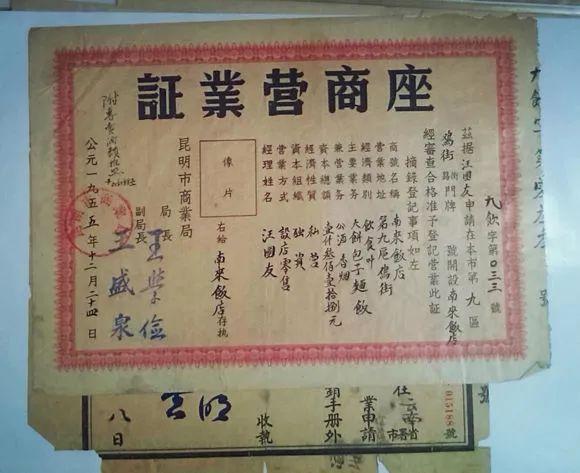 座商营業証
九飲字第0三三號
茲据汪國友申請在本市第九區
鴉街 街路 門牌 號開設南來飯店
經審查合格准予登記營業此証
摘錄登記事項如左
商號名稱 南來飯店
營業地址 第九區鴉街
經濟類别 飲食
主要業務 大餅包子麵飯
兼營業務 台酒香烟
資本總額 壹仟叁佰壹拾捌元
經濟性質 私营
資本組織 独資
營業方式 設店零售
經理姓名 汪國友
像片
右給南來飯店存执
昆明市商業局
局長
副局長
王盛泉
公元一九五五年十二月二十四日
015188號
任云南省
業申請
手册外
收執
八日